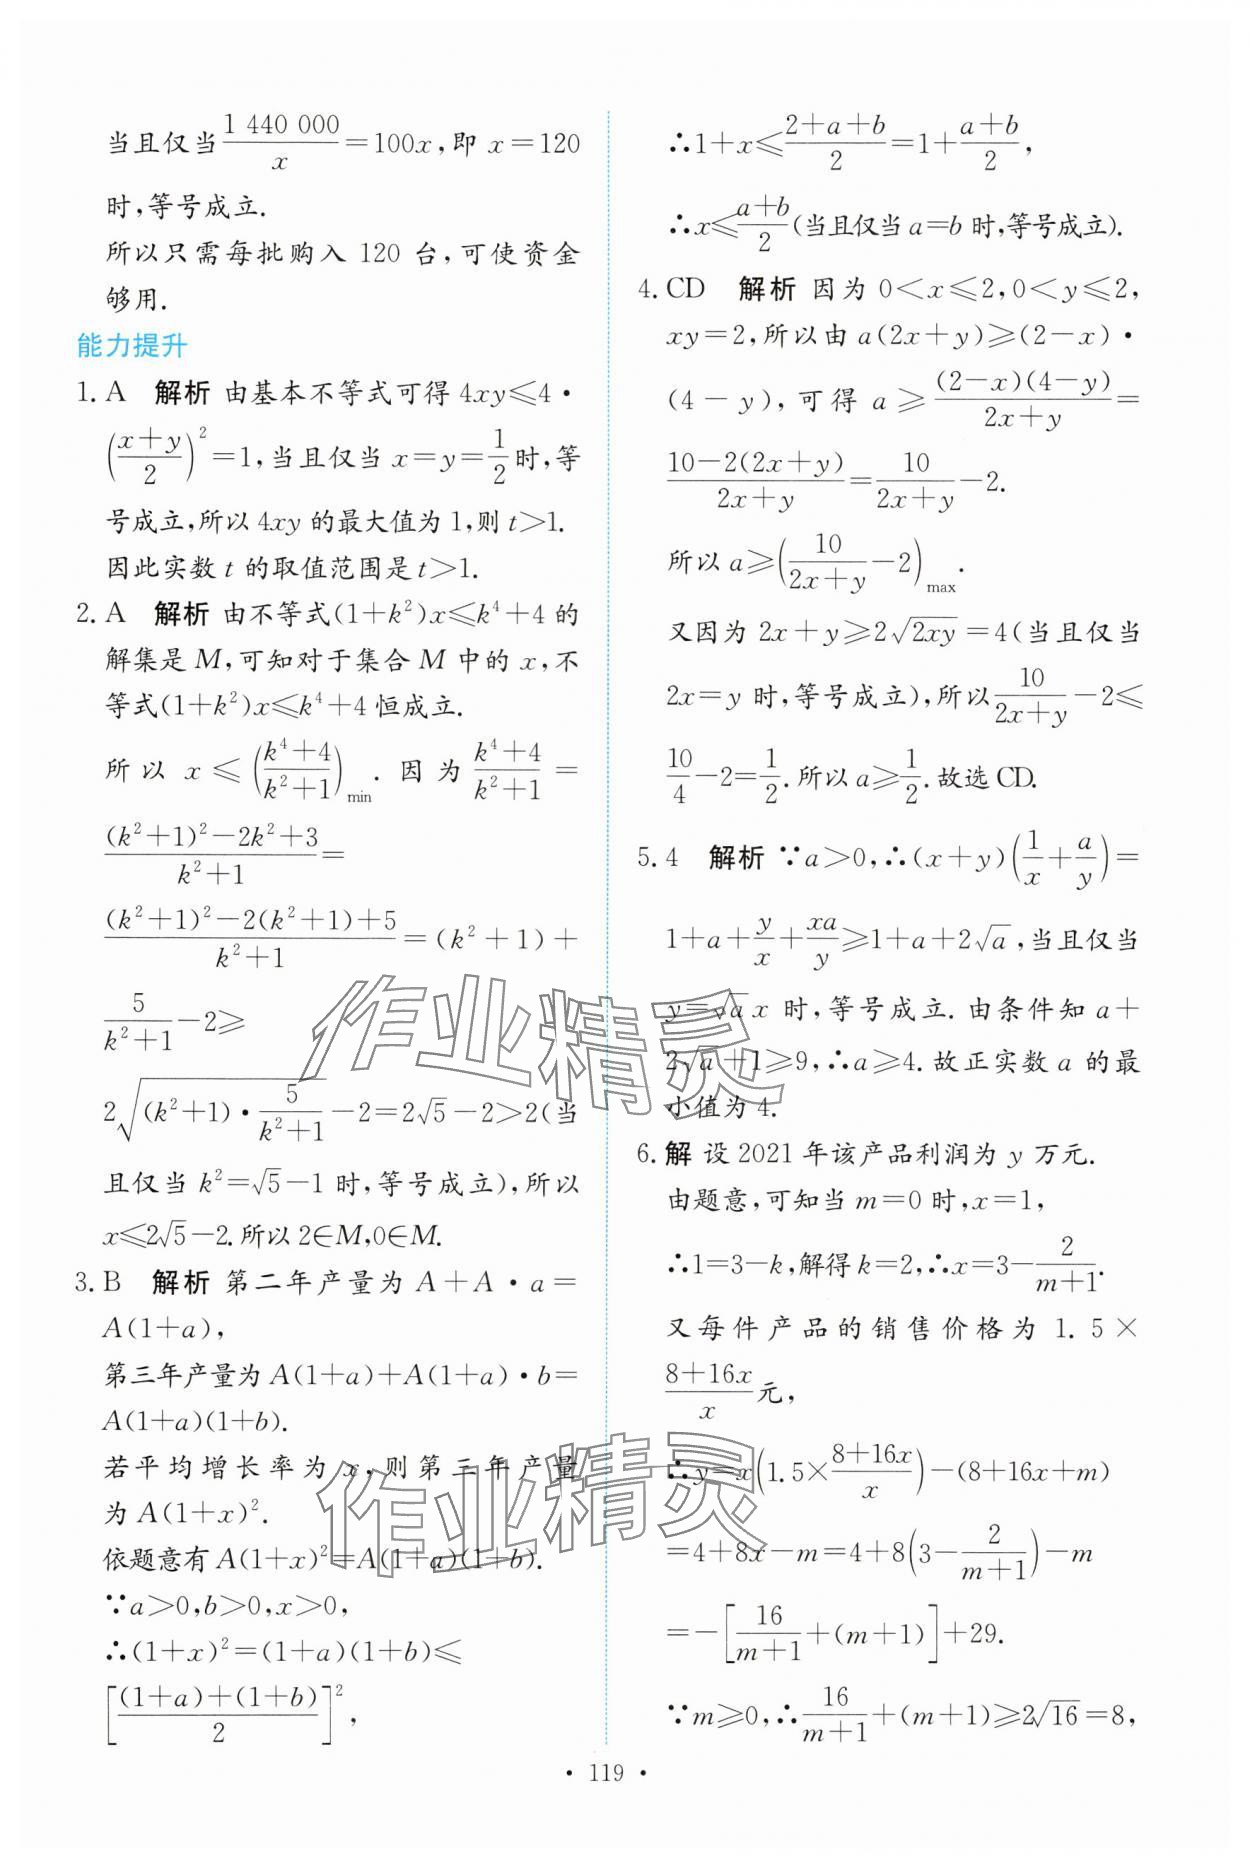 当且仅当1 440 000/x=100x,即 x=120
时,等号成立.
所以只需每批购入 120 台,可使资金
够用.
能力提升
1. A 解析 由基本不等式可得 4xy≤4·
((x+y)/2)²=1,当且仅当 x=y=1/2时,等
号成立,所以 4xy 的最大值为 1,则 t>1.
因此实数 t 的取值范围是 t>1.
2. A 解析 由不等式(1+k²)x≤k⁴+4 的
解集是 M,可知对于集合 M 中的 x,不
等式(1+k²)x≤k⁴+4 恒成立.
所以 x≤((k⁴+4)/(k²+1))min. 因为(k⁴+4)/(k²+1)=
((k²+1)²-2k²+3)/(k²+1)=
((k²+1)²-2(k²+1)+5)/(k²+1)=(k²+1)+
5/(k²+1)-2≥
2√((k²+1)·5/(k²+1))-2=2√5-2>2(当
且仅当 k²=√5-1 时,等号成立),所以
x≤2√5-2.所以 2∈M,0∈M.
3. B 解析 第二年产量为 A+A·a=
A(1+a),
第三年产量为 A(1+a)+A(1+a)·b=
A(1+a)(1+b).
若平均增长率为 x,则第三年产量
为 A(1+x)².
依题意有 A(1+x)²=A(1+a)(1+b).
∵a>0,b>0,x>0,
∴(1+x)²=(1+a)(1+b)≤
[((1+a)+(1+b))/2]²,
∴1+x≤(2+a+b)/2=1+(a+b)/2,
∴x≤(a+b)/2(当且仅当 a=b 时,等号成立).
4. CD 解析 因为 0<x≤2,0<y≤2,
xy=2,所以由 a(2x+y)≥(2-x)·
(4-y),可得 a≥((2-x)(4-y))/(2x+y)=
(10-2(2x+y))/(2x+y)=10/(2x+y)-2.
所以 a≥(10/(2x+y)-2)max.
又因为 2x+y≥2√(2xy)=4(当且仅当
2x=y 时,等号成立),所以10/(2x+y)-2≤
10/4-2=1/2.所以 a≥1/2.故选 CD.
5. 4 解析 ∵a>0,∴(x+y)(1/x+a/y)=
1+a+y/x+xa/y≥1+a+2√a,当且仅当
y=√a x 时,等号成立.由条件知 a+
2√a+1≥9,∴a≥4.故正实数 a 的最
小值为 4.
6. 解 设 2021 年该产品利润为 y 万元.
由题意,可知当 m=0 时,x=1,
∴1=3-k,解得 k=2,∴x=3-2/(m+1).
又每件产品的销售价格为 1.5×
(8+16x)/x元,
∴y=x(1.5×(8+16x)/x)-(8+16x+m)
=4+8x-m=4+8(3-2/(m+1))-m
=-[16/(m+1)+(m+1)]+29.
∵m≥0,∴16/(m+1)+(m+1)≥2√16=8,
作业精灵
作业精灵
· 119 ·